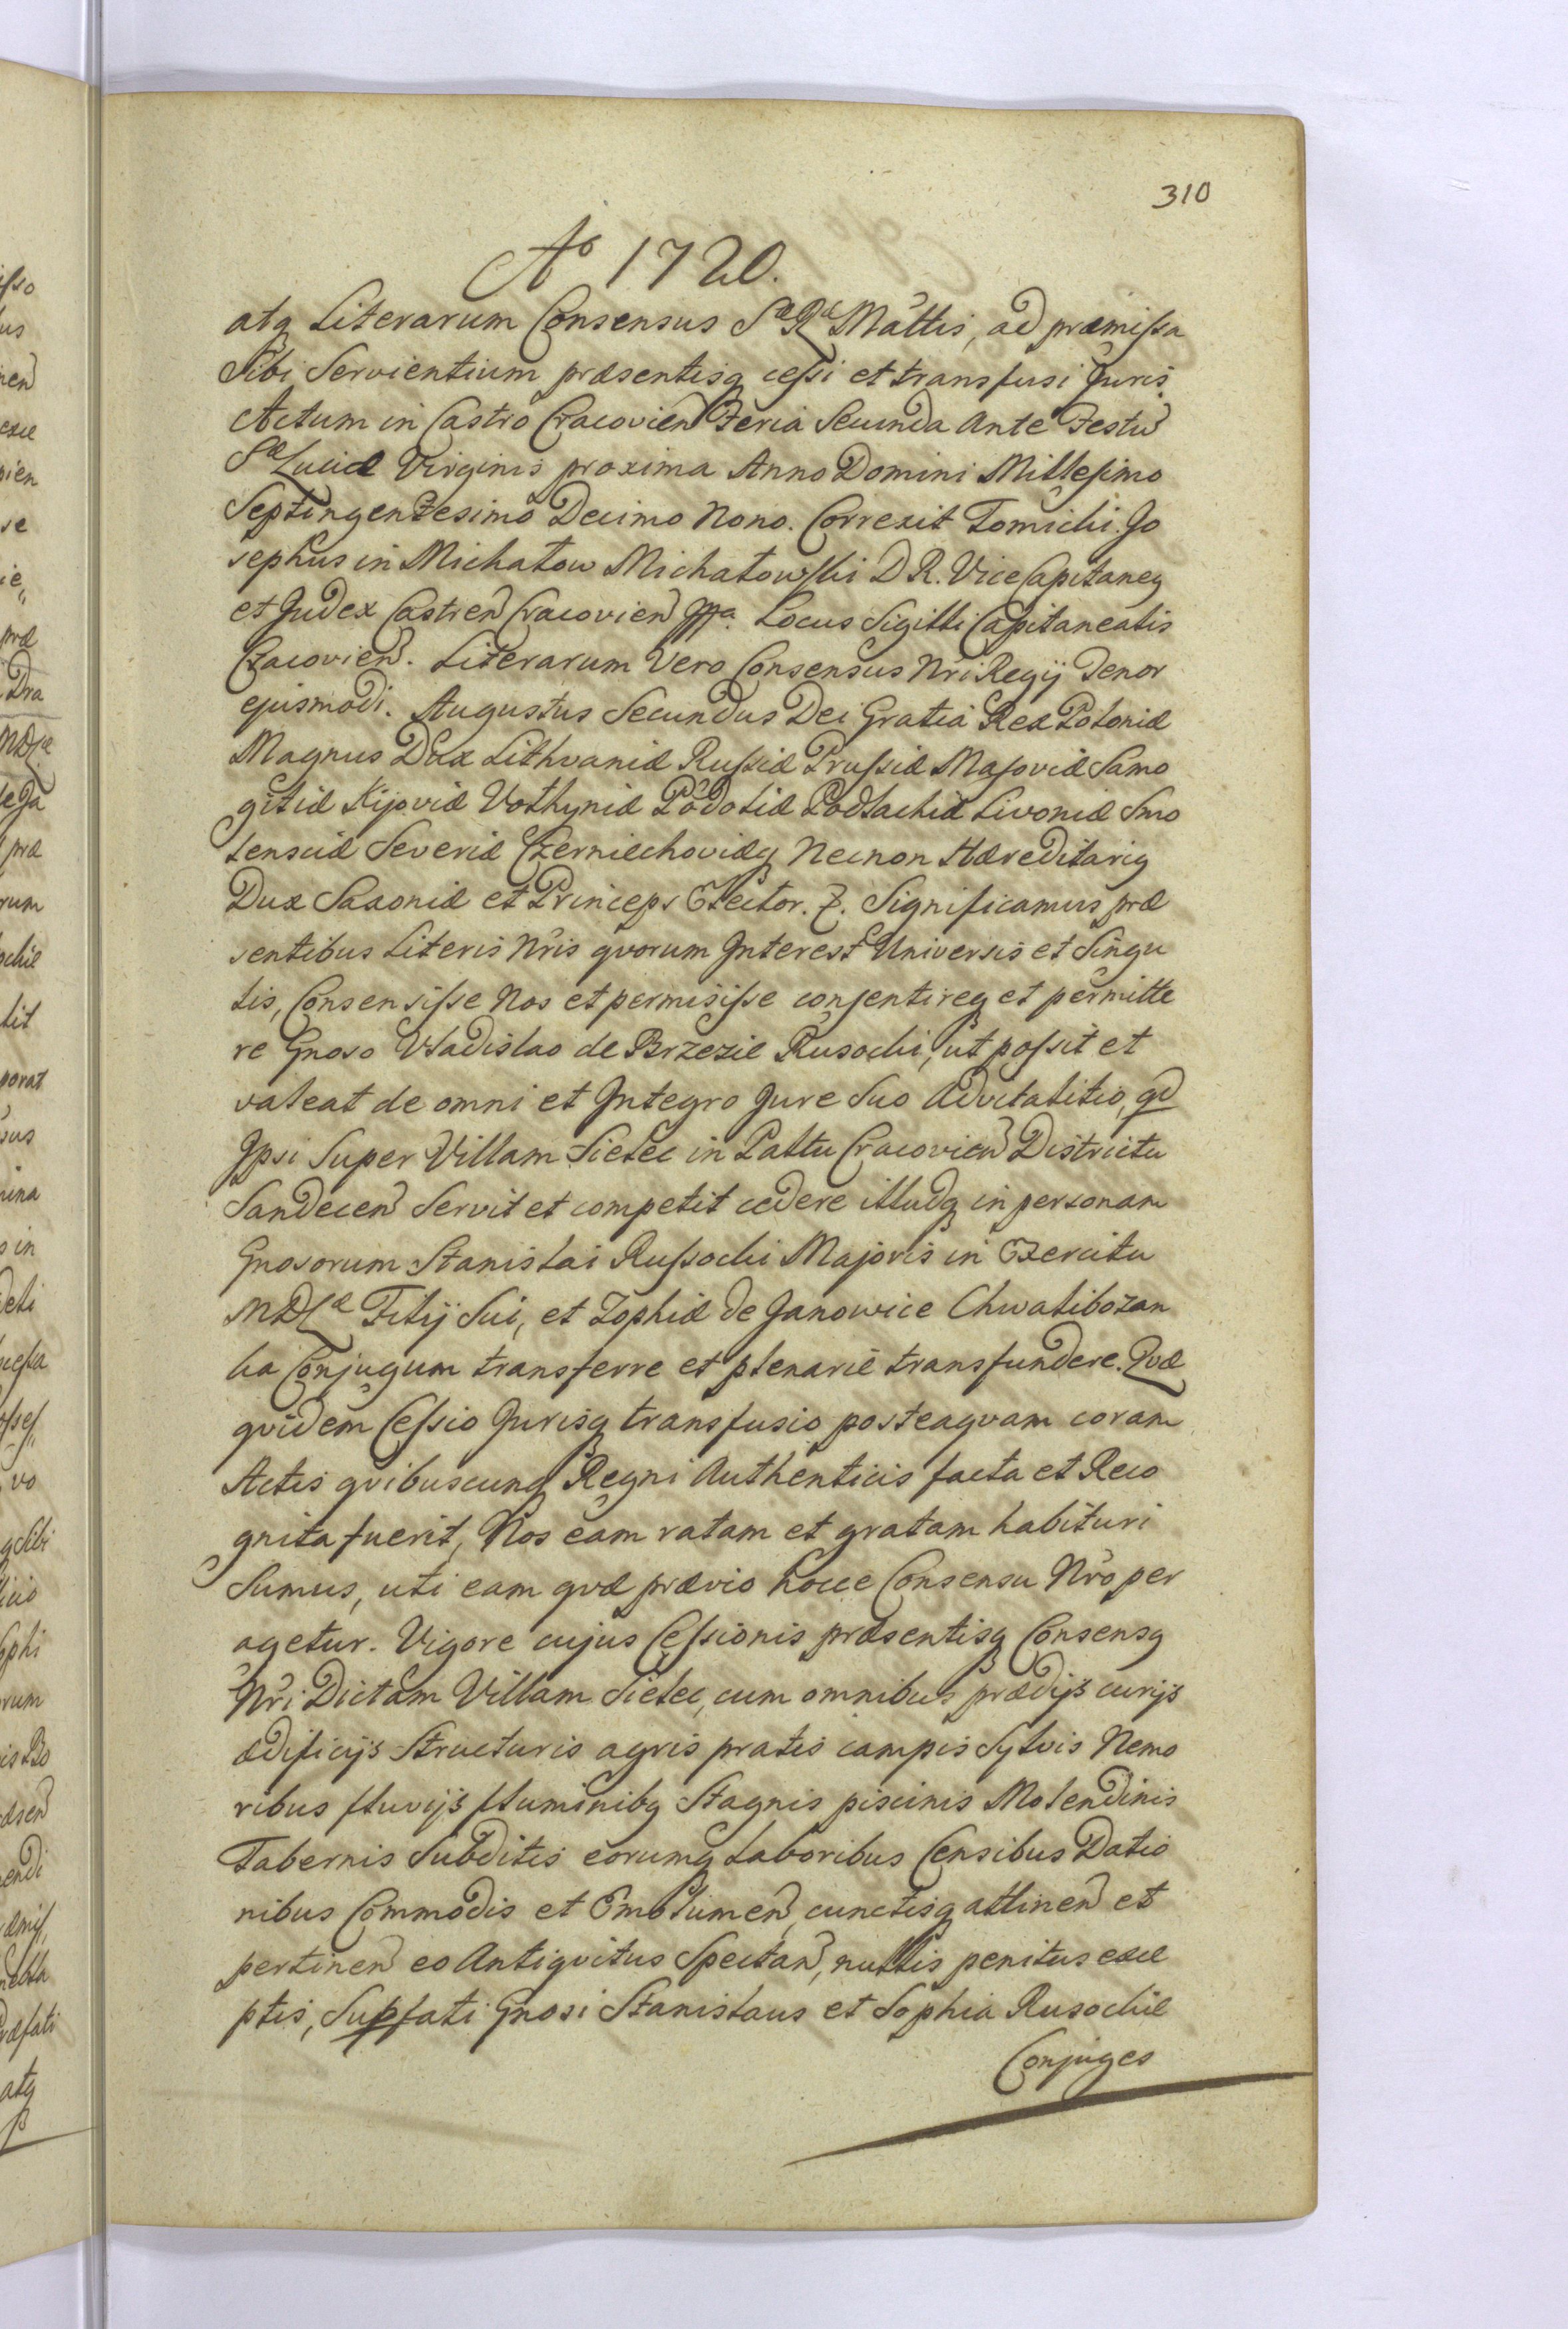 310
Aº 1720.
atq Literarum Consensus Sæ Ræ Mattis, ad præmissa
Sibi Servientium præsentisq cessi et transfusi Juris.
Actum in Castro Cracovien Feria Secunda Ante Festu
Sæ Luciæ Virginis proxima Anno Domini Millesimo
Septingentesimo Decimo Nono. Correxit Tomicki. Jo
sephus in Michałow Michałowski D R. Vice Capitaneq
et Judex Castren Cracovien mpa. Locus Sigilli Capitanealis
Cracovien. Literarum Vero Consensus Nri Regij Tenor
ejusmodi. Augustus Secundus Dei Gratia Rex Poloniæ
Magnus Dux Lithvaniæ Russiæ Prussiæ Masoviæ Samo
gitiæ Kijoviæ Volhyniæ Podoliæ Podlachiæ Livoniæ Smo
lensciæ Severiæ Czerniechoviæq Necnon Hæreditariq
Dux Saxoniæ et Princeps Elector. Z. Significamus præ
sentibus Literis Nris qvorum Interest Universis et Singu
lis, Consensisse Nos et permisisse consentireq et permitte
re Gnoso Vladislao de Brzezie Rusocki, ut possit et
valeat de omni et Integro Jure Suo Advitalitio, qd
Ipsi Super Villam Sielec in Pallu Cracovien Districtu
Sandecen Servit et competit cedere illudq in personam
Gnosorum Stanislai Russocki Majoris in Exercitu
MDLæ Filij Sui, et Zophiæ de Janowice Chwalibozan
ka Conjugum transferre et plenarie transfundere. Qvæ
qvidem Cessio Jurisq transfusio posteaqvam coram
Actis qvibuscunq Regni Authenticis facta et Reco
gnita fuerit, Nos eam ratam et gratam habituri
Sumus, uti eam qvæ prævio hocce Consensu Nro per
agetur. Vigore cujus Cessionis præsentisq Consensq
Nri Dictam Villam Sielec, cum omnibus prædijs curijs
ædificijs Structuris agris pratis campis Sylvis Nemo
ribus fluvijs fluminibq Stagnis piscinis Molendinis
Tabernis Subditis eorumq Laboribus Censibus Datio
nibus Commodis et Emolumen, cunctisq attinen et
pertinen eo Antiqvitus Spectan, nullis penitus exce
ptis, Supfati Gnosi Stanislaus et Sophia Rusockie
Conjuges